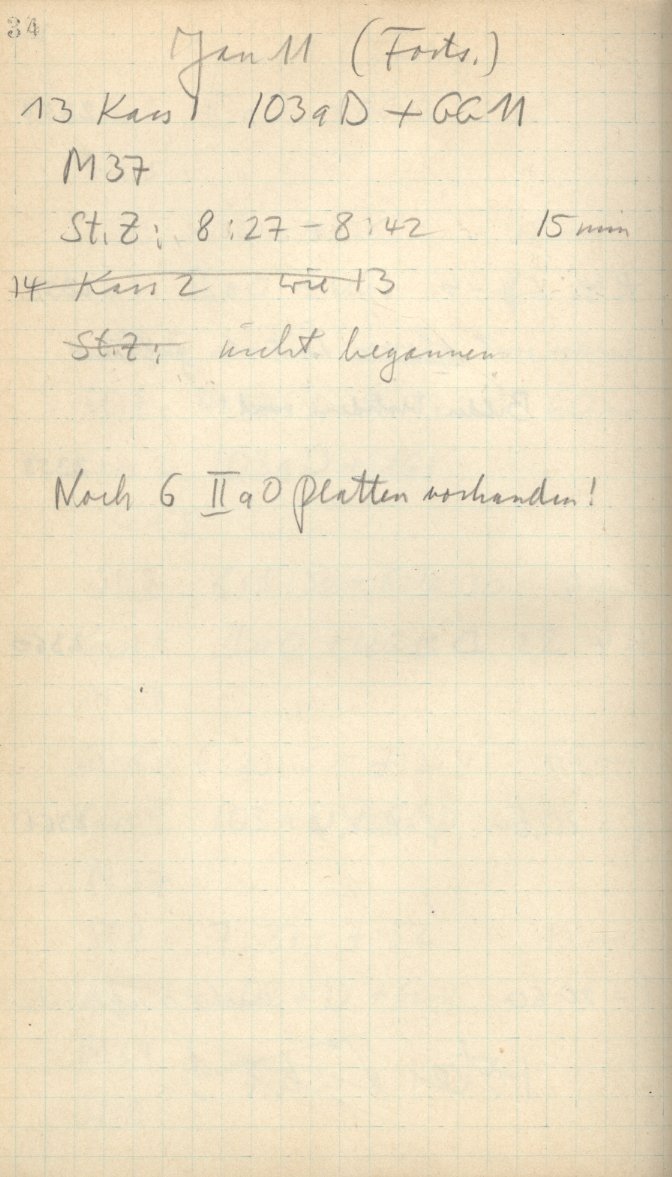 34
Jan 11 (Forts.)
13 Kass 1 103aD + GG11
M37
St.Z: 8:27 – 8:42 15 min
14 Kass 2 wie 13
St.Z: nicht begonnen
Noch 6 IIaO Platten vorhanden!